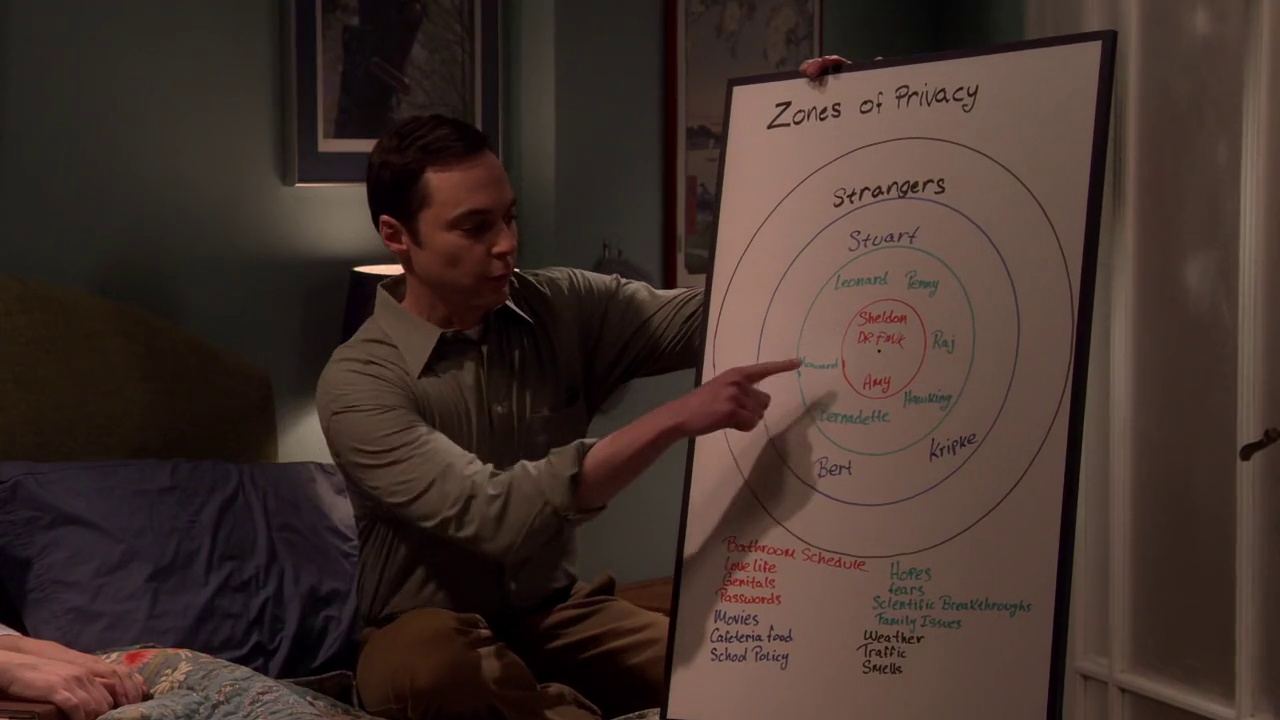 Zones of Privacy
Strangers
Stuart
Leonard Penny
Sheldon
DR. Fink
Raj
Howard
Amy
Hawking
Bernadette
Kripke
Bert
Bathroom Schedule
Love life
Genitals
Passwords
Movies
Cafeteria food
School Policy
Hopes
fears
Scientific Breakthroughs
Family Issues
Weather
Traffic
Smells